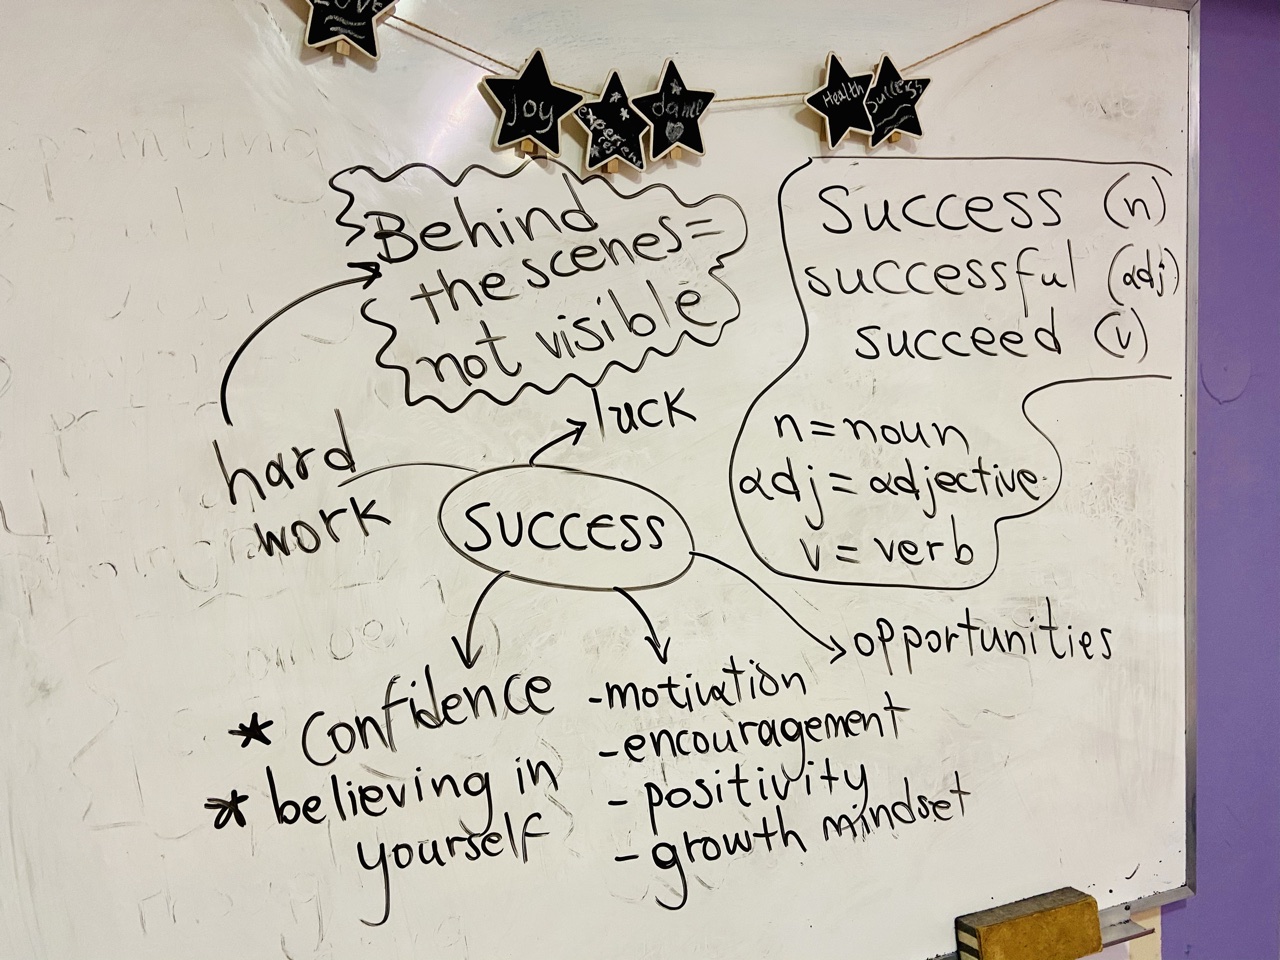 LOVE
Joy
experiences
dance
Health
Success
Behind
the scenes=
not visible
Success (n)
successful (adj)
succeed (v)
n=noun
adj = adjective
v = verb
hard
work
luck
SUCCESS
opportunities
* Confidence
* believing in
yourself
-motivation
-encouragement
-positivity
-growth mindset